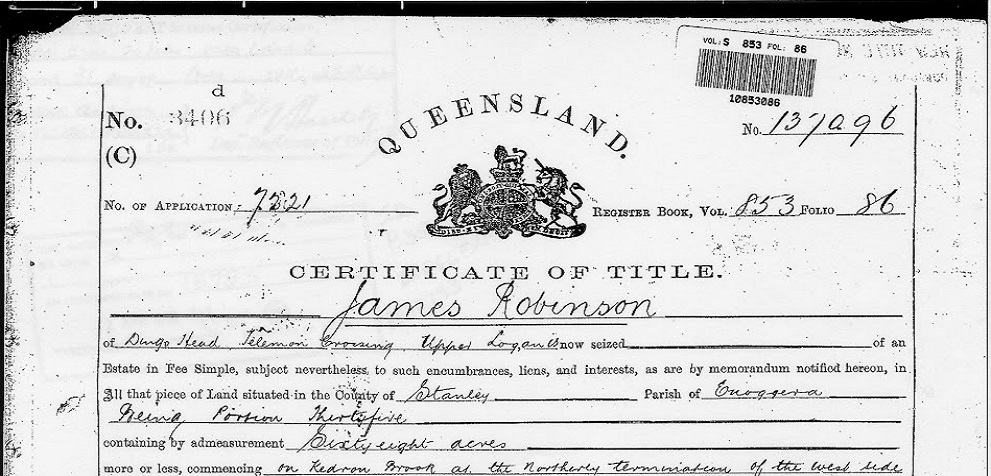 VOL: S 853 FOL: 86
10853086
d
No. 3406
(C)
QUEENSLAND.
No. 137096
No. OF APPLICATION, 7321
REGISTER BOOK, VOL. 853 FOLIO 86
DIEU ET MON DROIT
CERTIFICATE OF TITLE.
James Robinson
of Dugo Head Telemon Crossing Upper Logan is now seized of an
Estate in Fee Simple, subject nevertheless to such encumbrances, liens, and interests, as are by memorandum notified hereon, in
All that piece of Land situated in the County of Stanley Parish of Enoggera
Being Portion Thirtyfive
containing by admeasurement Sixtyeight acres
more or less, commencing on Kedron Brook at the Northerly termination of the west side